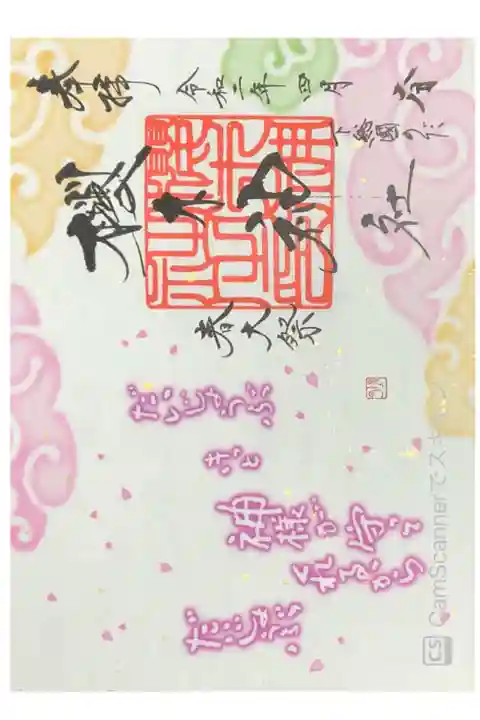 奉拝 令和二年四月
下総國のだ
櫻木神社
春大祭
だいじょうぶ
きっと
神様が守って
くれるから
だいじょうぶ
CS CamScannerでスキャン